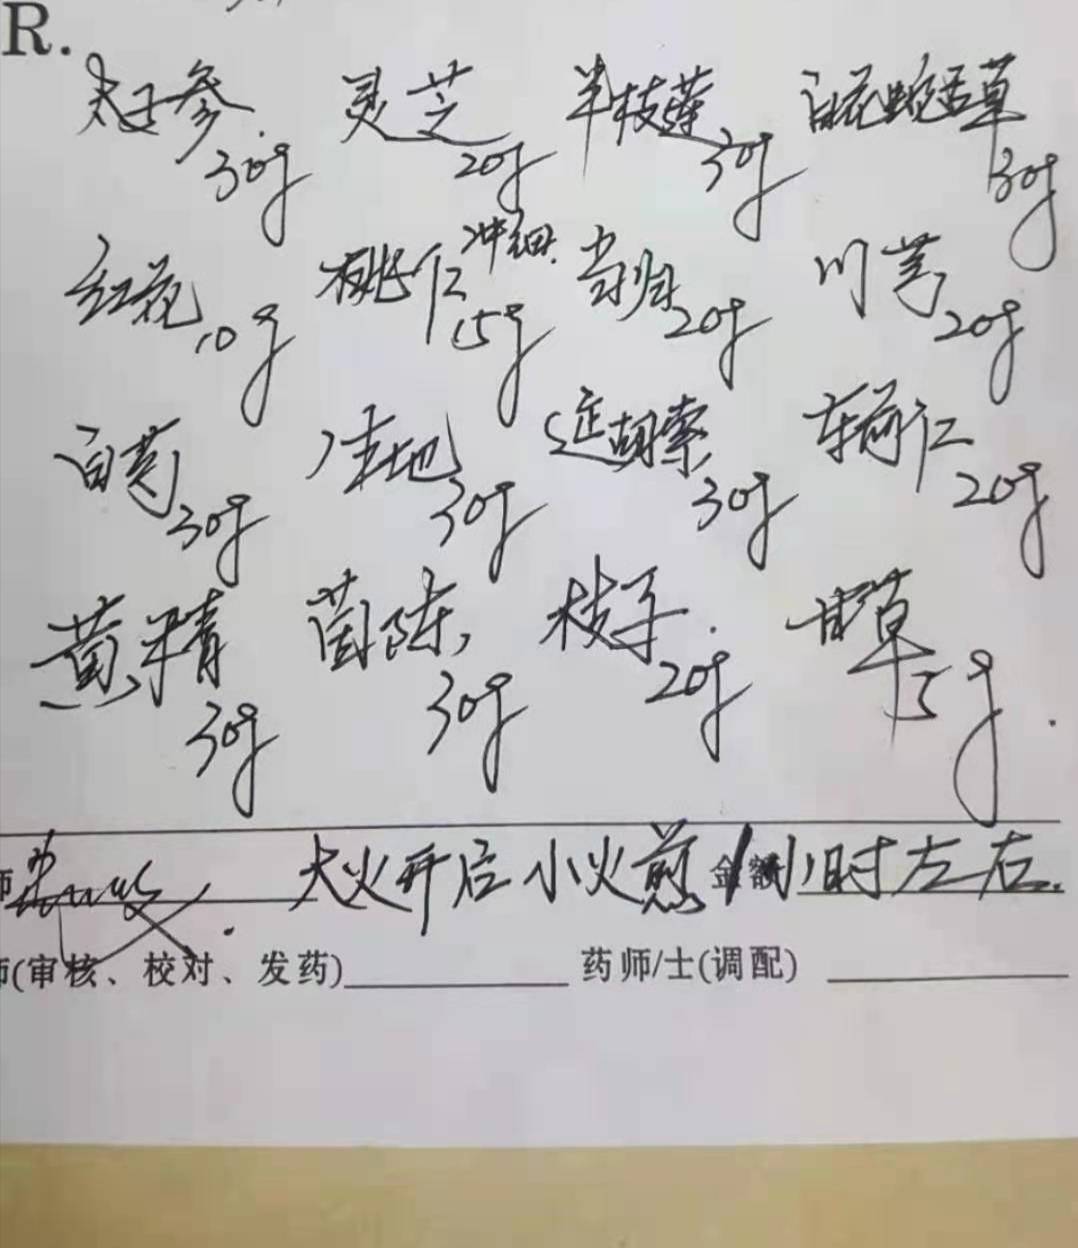 R.
太子参 30g 灵芝 20g 半枝莲 30g 白花蛇舌草 30g
红花 10g 桃仁 冲细 15g 当归 20g 川芎 20g
白芍 30g 生地 30g 延胡索 30g 车前仁 20g
黄精 30g 茵陈 30g 枝子 20g 甘草 5g
大火开后小火煎 1小时左右.
金额
师(审核、校对、发药) 药师/士(调配)